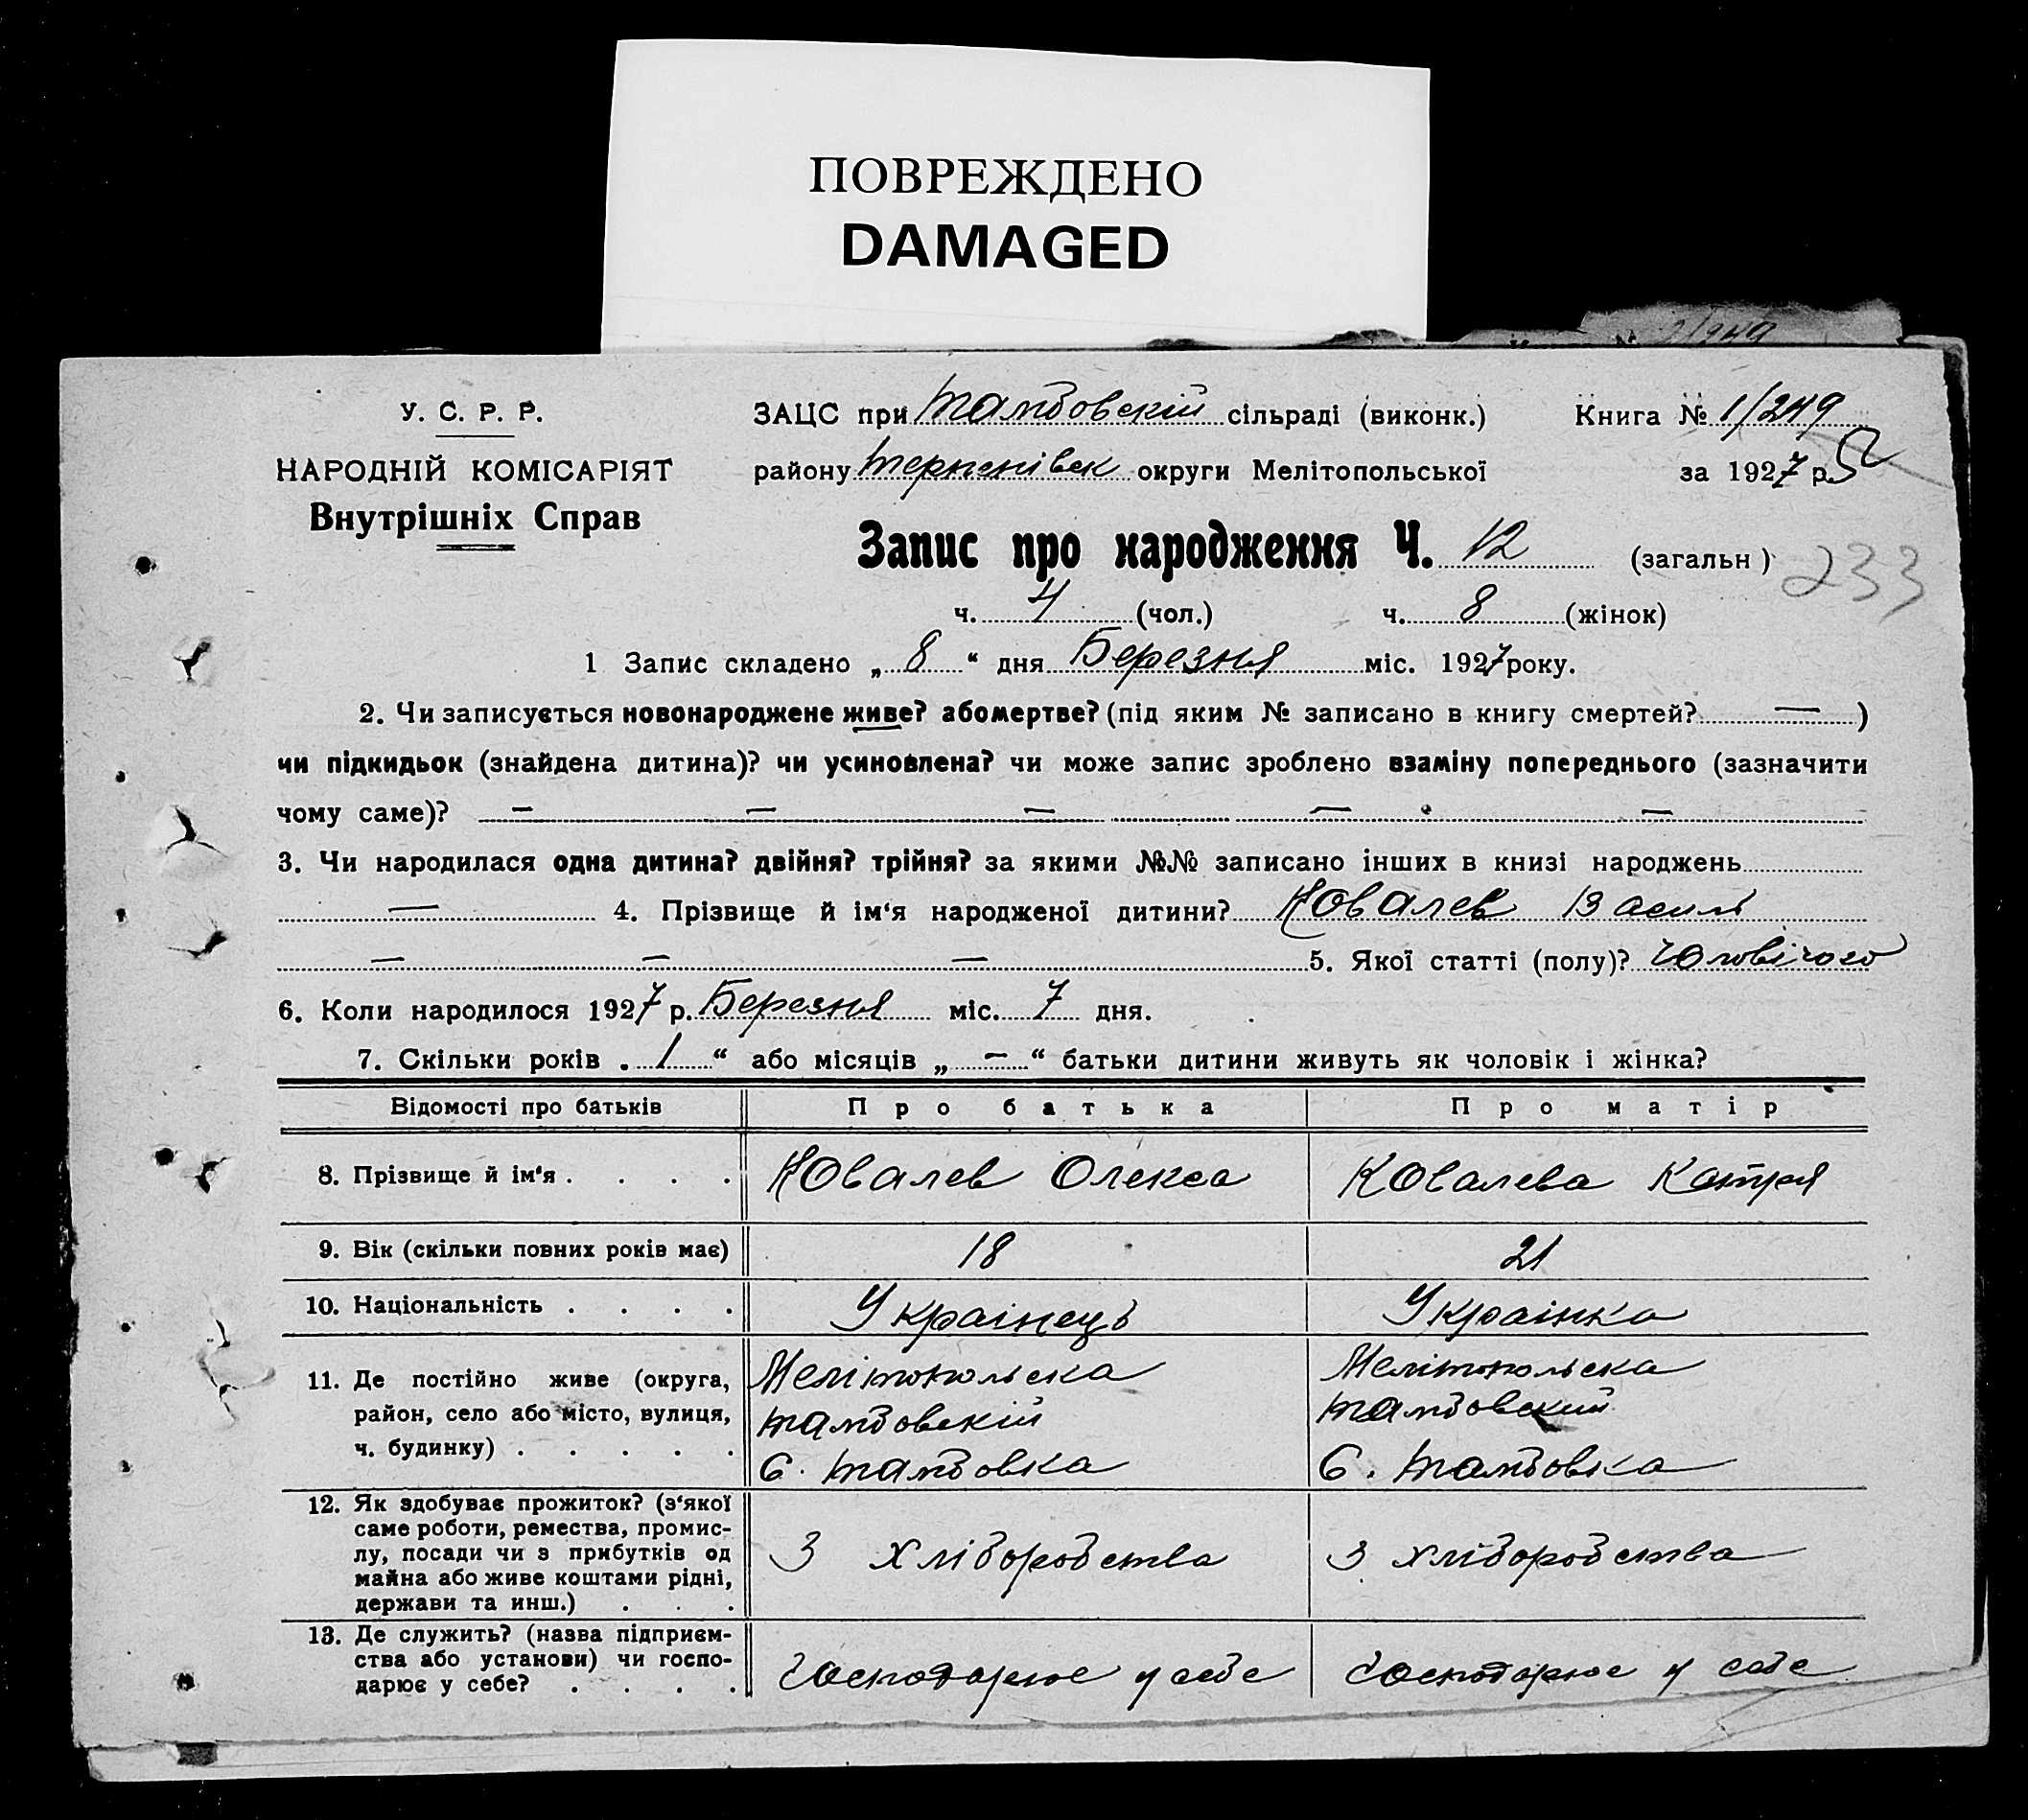 ПОВРЕЖДЕНО
DAMAGED
У. С. Р. Р.
НАРОДНІЙ КОМІСАРІЯТ
Внутрішніх Справ
ЗАЦС при Тамбовскій сільраді (виконк.) Книга № 1/249
району Терпенівск округи Мелітопольської за 1927 р.
Запис про народження Ч. 12 (загальн)
233
ч. 4 (чол.) ч. 8 (жінок)
1 Запис складено „ 8 “ дня Березня міс. 1927 року.
2. Чи записується новонароджене живе? або мертве? (під яким № записано в книгу смертей? — )
чи підкидьок (знайдена дитина)? чи усиновлена? чи може запис зроблено взаміну попереднього (зазначити
чому саме)? — — — — —
3. Чи народилася одна дитина? двійня? трійня? за якими №№ записано інших в книзі народжень
— 4. Прізвище й ім‘я народженої дитини? Ковалев Василь
— — — 5. Якої статті (полу)? Чоловічого
6. Коли народилося 1927 р. Березня міс. 7 дня.
7. Скільки років „ 1 “ або місяців „ — “ батьки дитини живуть як чоловік і жінка?
Відомості про батьків Про батька Про матір
8. Прізвище й ім‘я . . . . Ковалев Олекса Ковалева Катря
9. Вік (скільки повних років має) 18 21
10. Національність . . . . Українець Українка
11. Де постійно живе (округа, район, село або місто, вулиця, ч. будинку) . . . . .
Мелітопольска
Тамбовскій
С. Тамбовка
Мелітопольска
Тамбовский
С. Тамбовка
12. Як здобуває прожиток? (з‘якої
саме роботи, ремества, промис-
лу, посади чи з прибутків од
майна або живе коштами рідні,
держави та инш.) . . .
З хліборобства З хліборобства
13. Де служить? (назва підприєм-
ства або установи) чи госпо-
дарює у себе? . . . .
Господарює у себе Господарює у себе